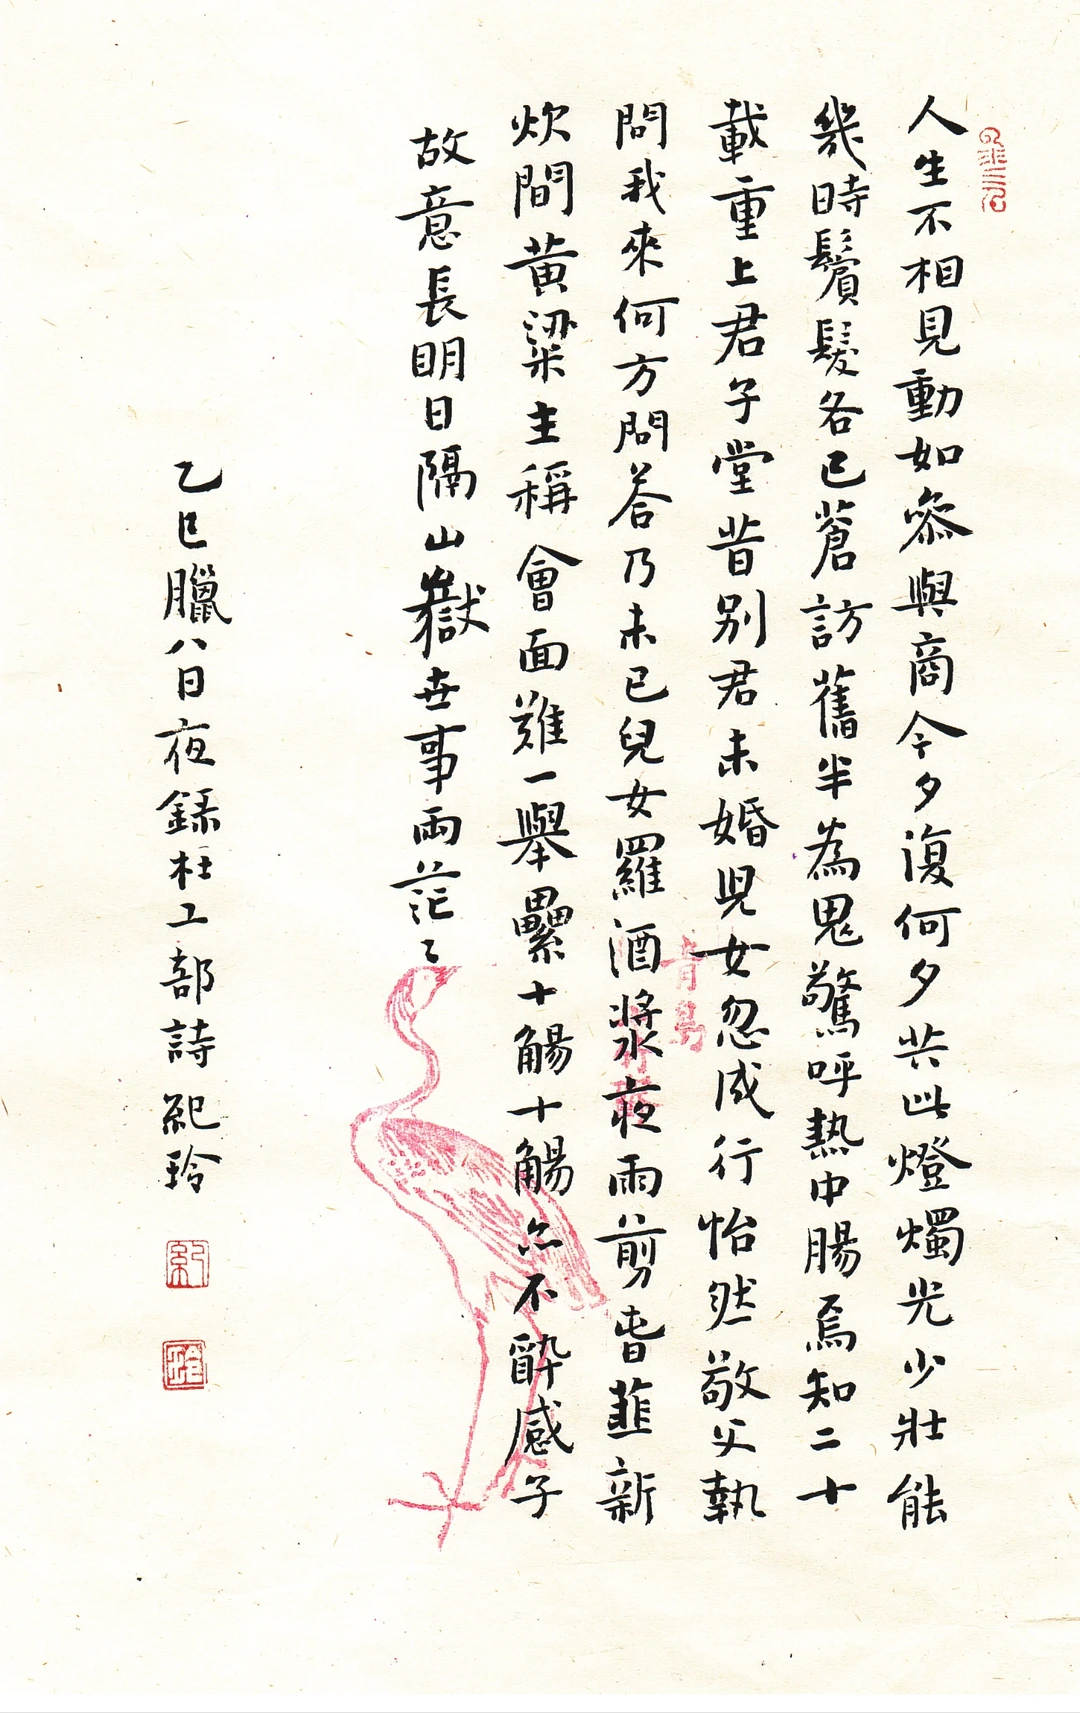 人生不相見動如參與商今夕復何夕共此燈燭光少壯能
幾時鬢髮各已蒼訪舊半為鬼驚呼熱中腸焉知二十
載重上君子堂昔別君未婚兒女忽成行怡然敬父執
問我來何方問荅乃未已兒女羅酒漿夜雨剪春韮新
炊間黃粱主稱會面難一舉纍十觴十觴亦不醉感子
故意長明日隔山嶽世事兩茫〻
乙巳臘八日夜錄杜工部詩 紀玲
青鳥
紀
玲